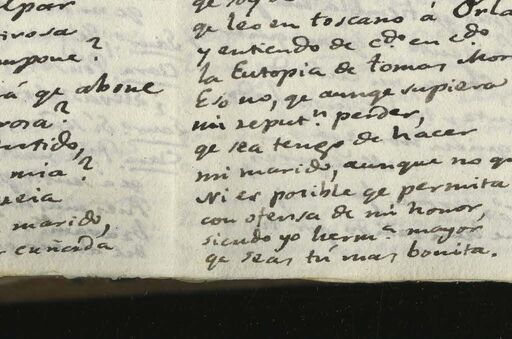 lpar
irosa
mpone?
rá qe abone
rosa?
artido,
mia?
neia
marido,
cuñada
qe leo en toscano á Orla
y entiendo de cdo en cdo
la Eutopia de tomas Mor
Eso no, qe aunqe supiera
mi reputn perder,
qe sea tengo de hacer
mi marido, aunque no q
Ni es posible qe permita
con ofensa de mi honor,
siendo yo herma mayor
qe seas tú mas bonita.